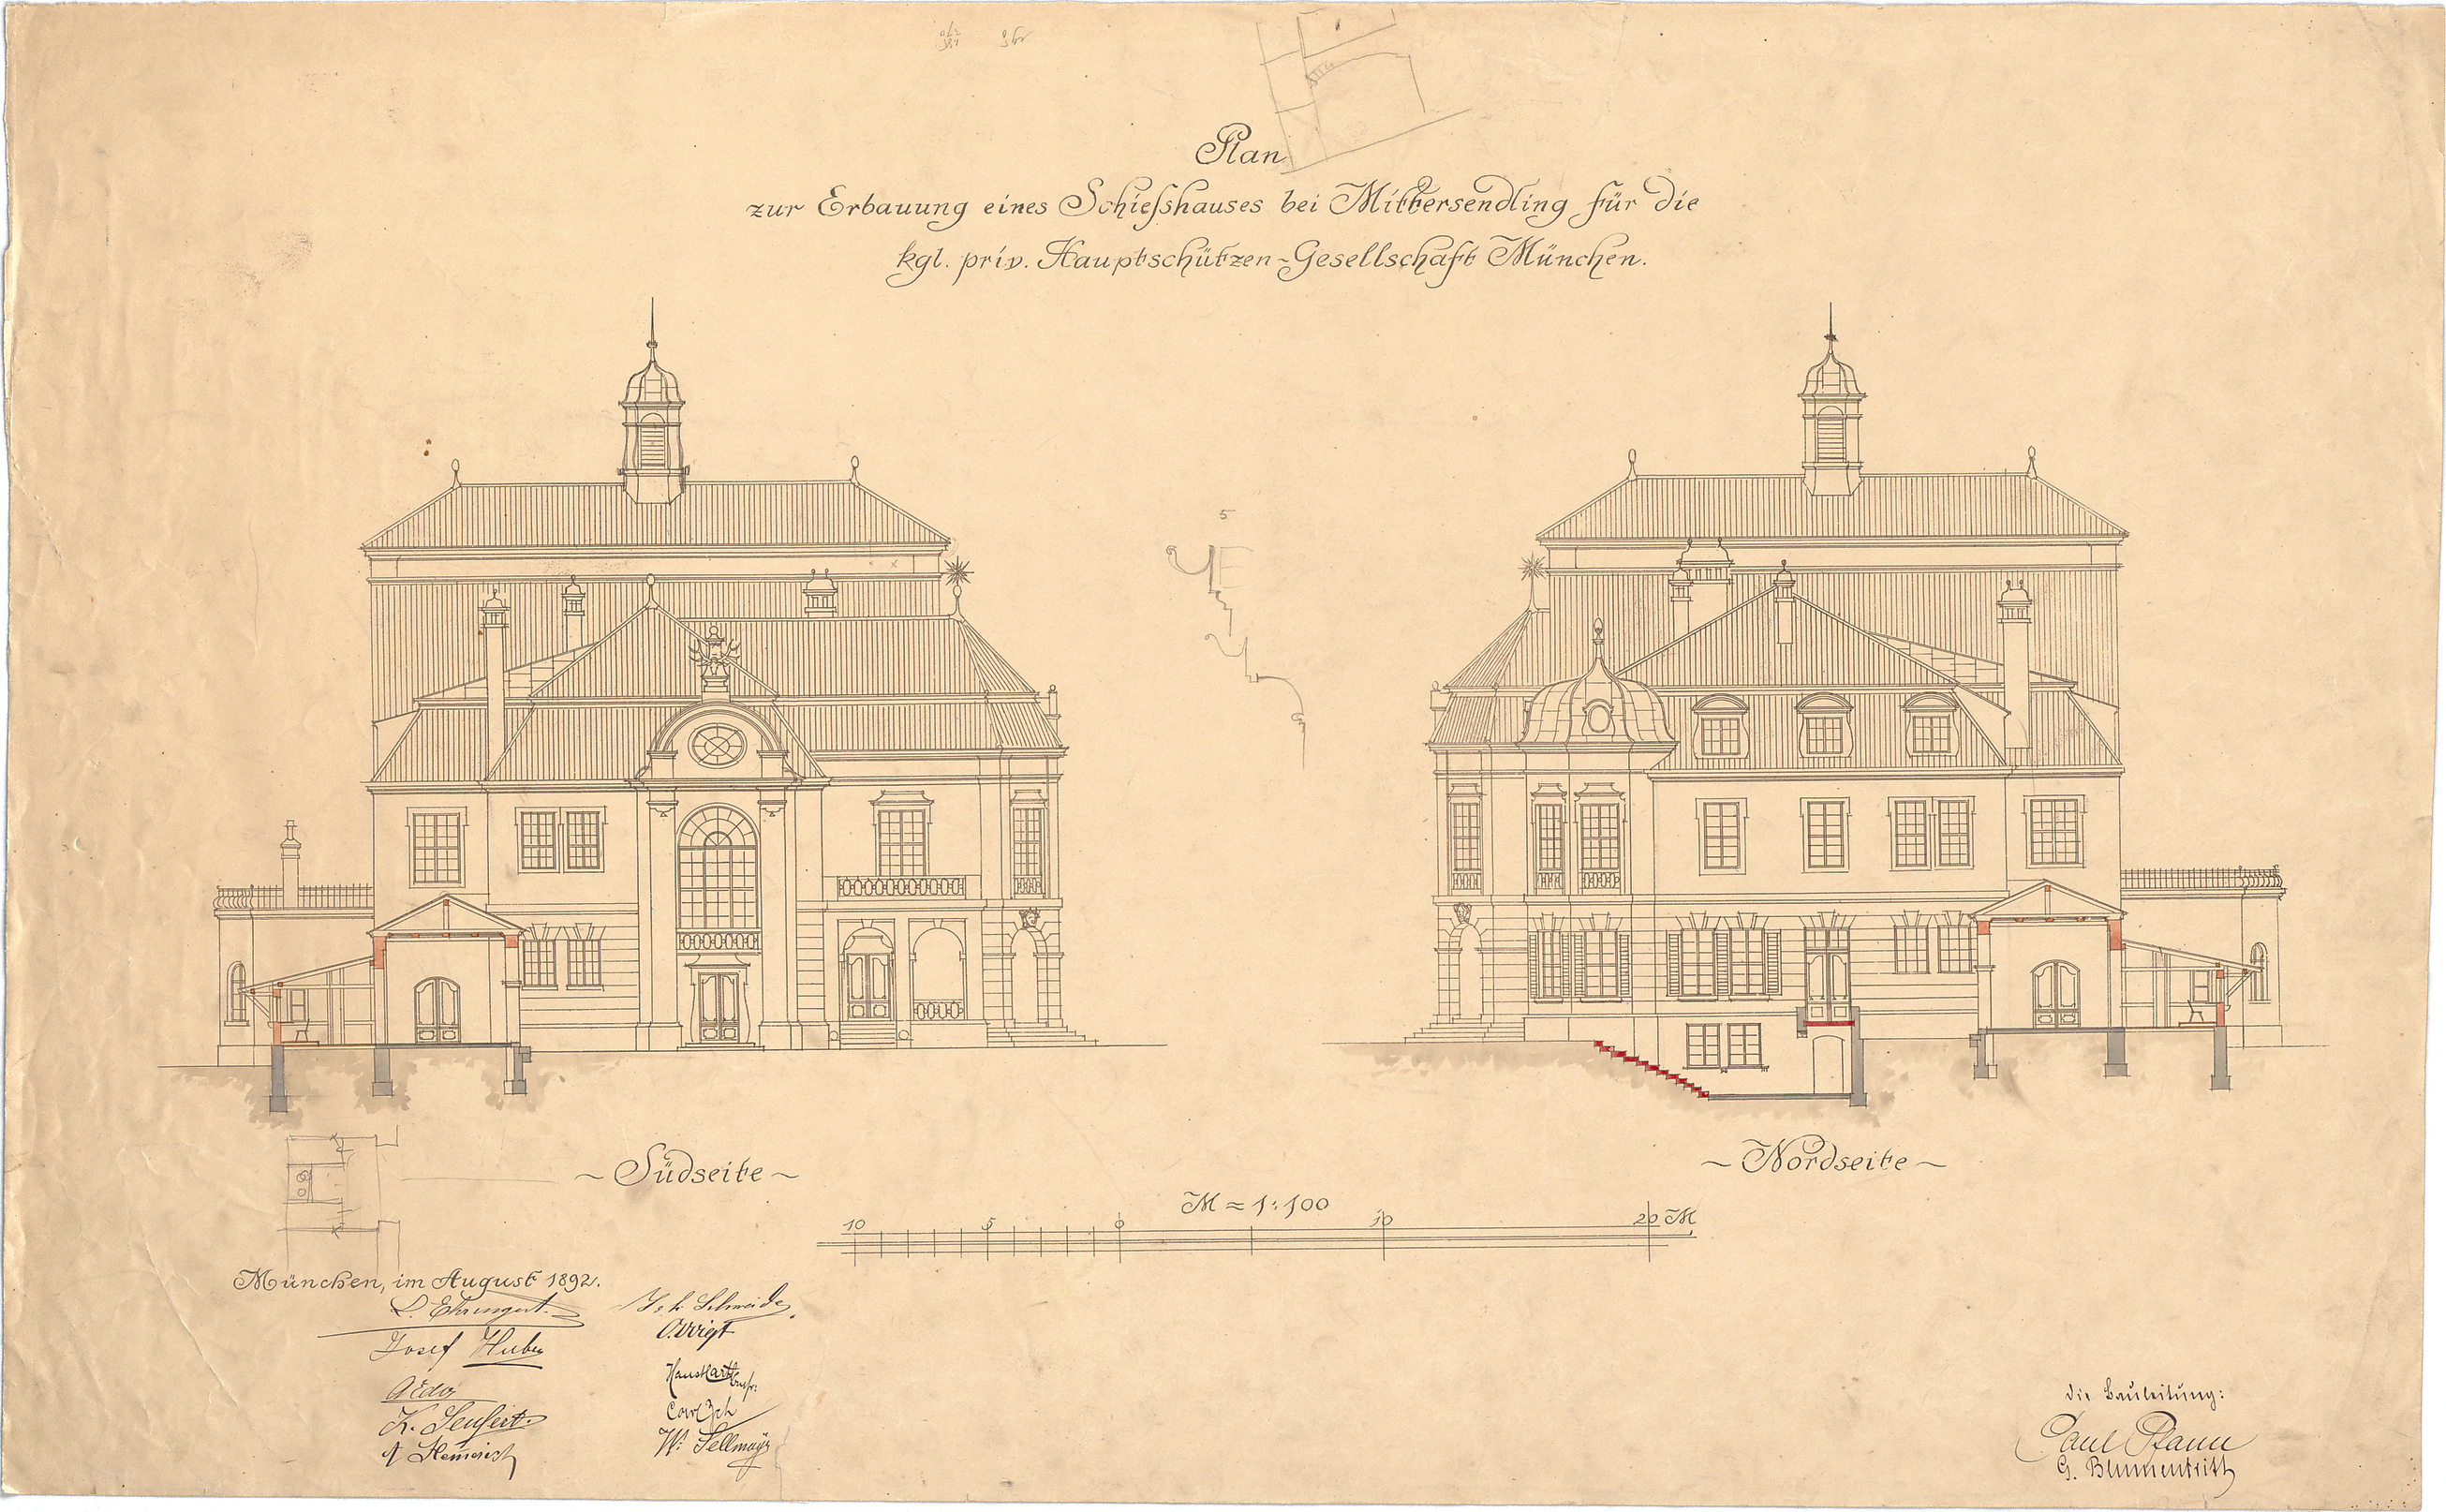 Plan
zur Erbauung eines Schießshauses bei Mittersendling für die
kgl. priv. Hauptschützen-Gesellschaft München.
5
~ Südseite ~
~ Nordseite ~
M = 1:100
10 5 0 10 20 M
München, im August 1892.
Josef Huber
O. Voigt
K. Seufert
W. Sellmayr
die Bauleitung:
Paul Pfann
G. Blumentritt